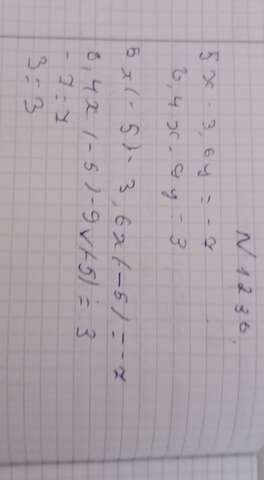 N 1236.
5x - 3,6y = -7
6,4x - 9y = 3
5x(-5) - 3,6x(-5) = -7
6,4x(-5) - 9x(-5) = 3
-7 = 7
3 = 3